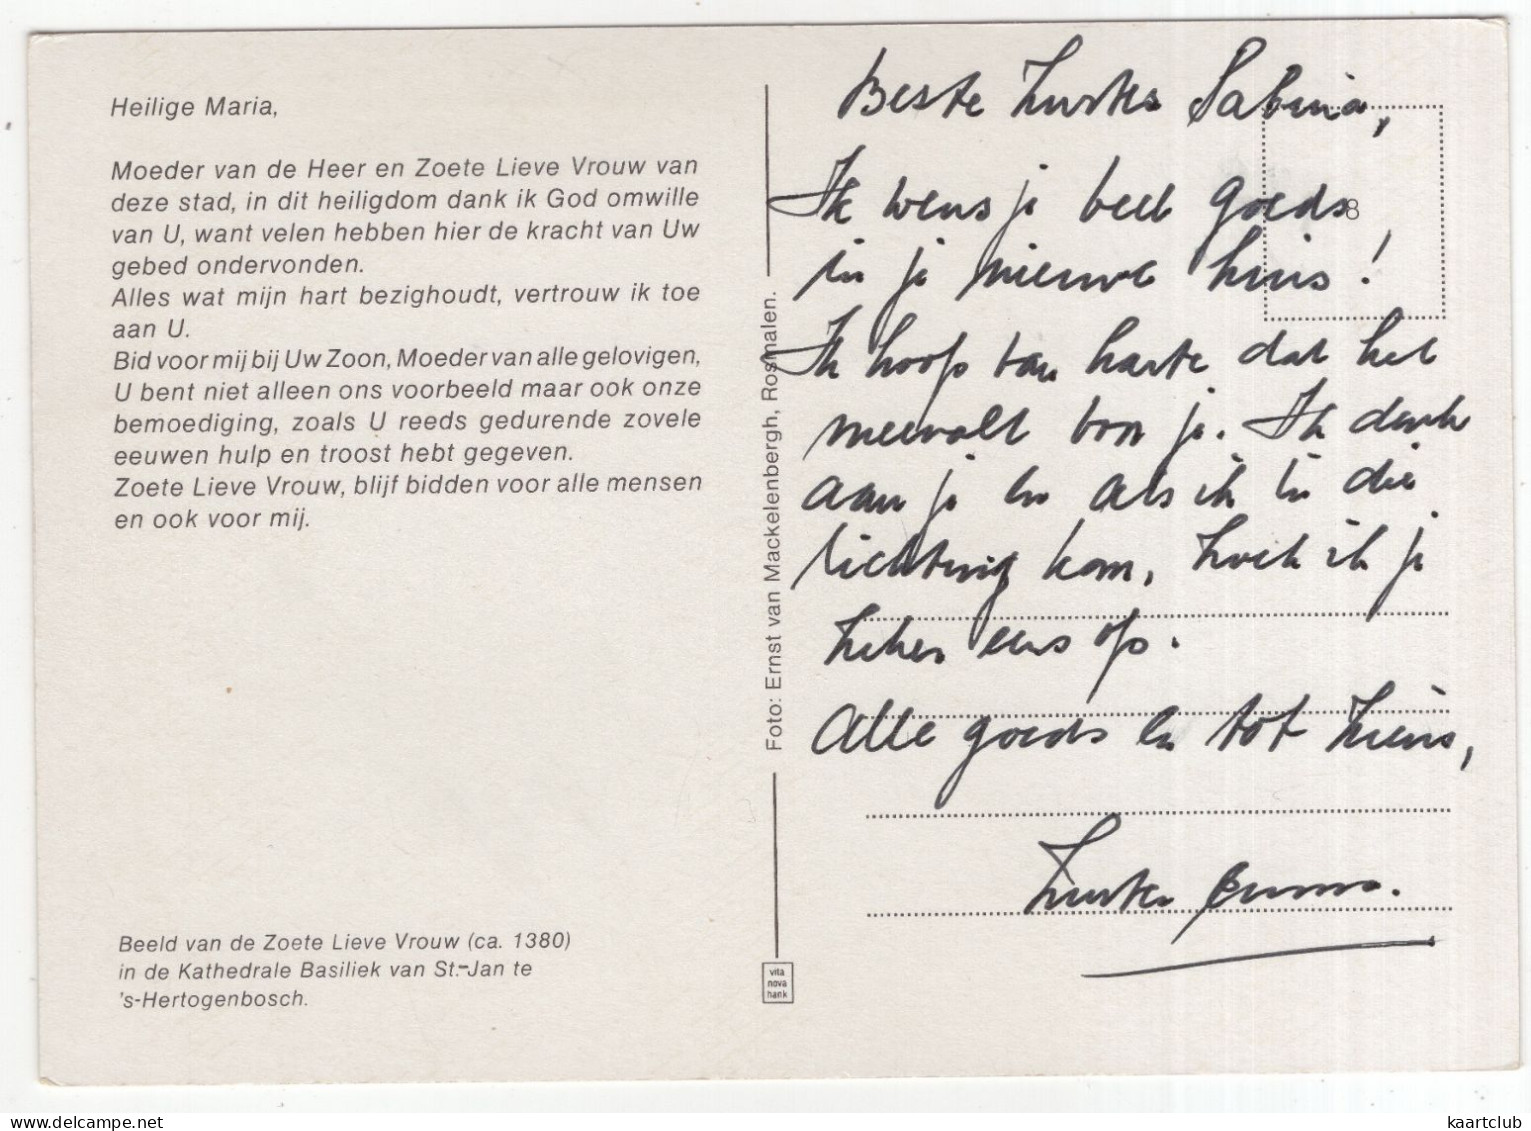 Heilige Maria,
Moeder van de Heer en Zoete Lieve Vrouw van
deze stad, in dit heiligdom dank ik God omwille
van U, want velen hebben hier de kracht van Uw
gebed ondervonden.
Alles wat mijn hart bezighoudt, vertrouw ik toe
aan U.
Bid voor mij bij Uw Zoon, Moeder van alle gelovigen,
U bent niet alleen ons voorbeeld maar ook onze
bemoediging, zoals U reeds gedurende zovele
eeuwen hulp en troost hebt gegeven.
Zoete Lieve Vrouw, blijf bidden voor alle mensen
en ook voor mij.
Beeld van de Zoete Lieve Vrouw (ca. 1380)
in de Kathedrale Basiliek van St.-Jan te
's-Hertogenbosch.
Foto: Ernst van Mackelenbergh, Rosmalen.
vita
nova
hank
Beste Zuster Sabina,
Ik wens je veel goeds
8
in je nieuwe huis!
Ik hoop van harte dat het
meevalt voor je. Ik denk
aan je en als ik in die
richting kom, zoek ik je
zeker eens op.
Alle goeds en tot ziens,
Zuster
kaartclub
delcampe.net